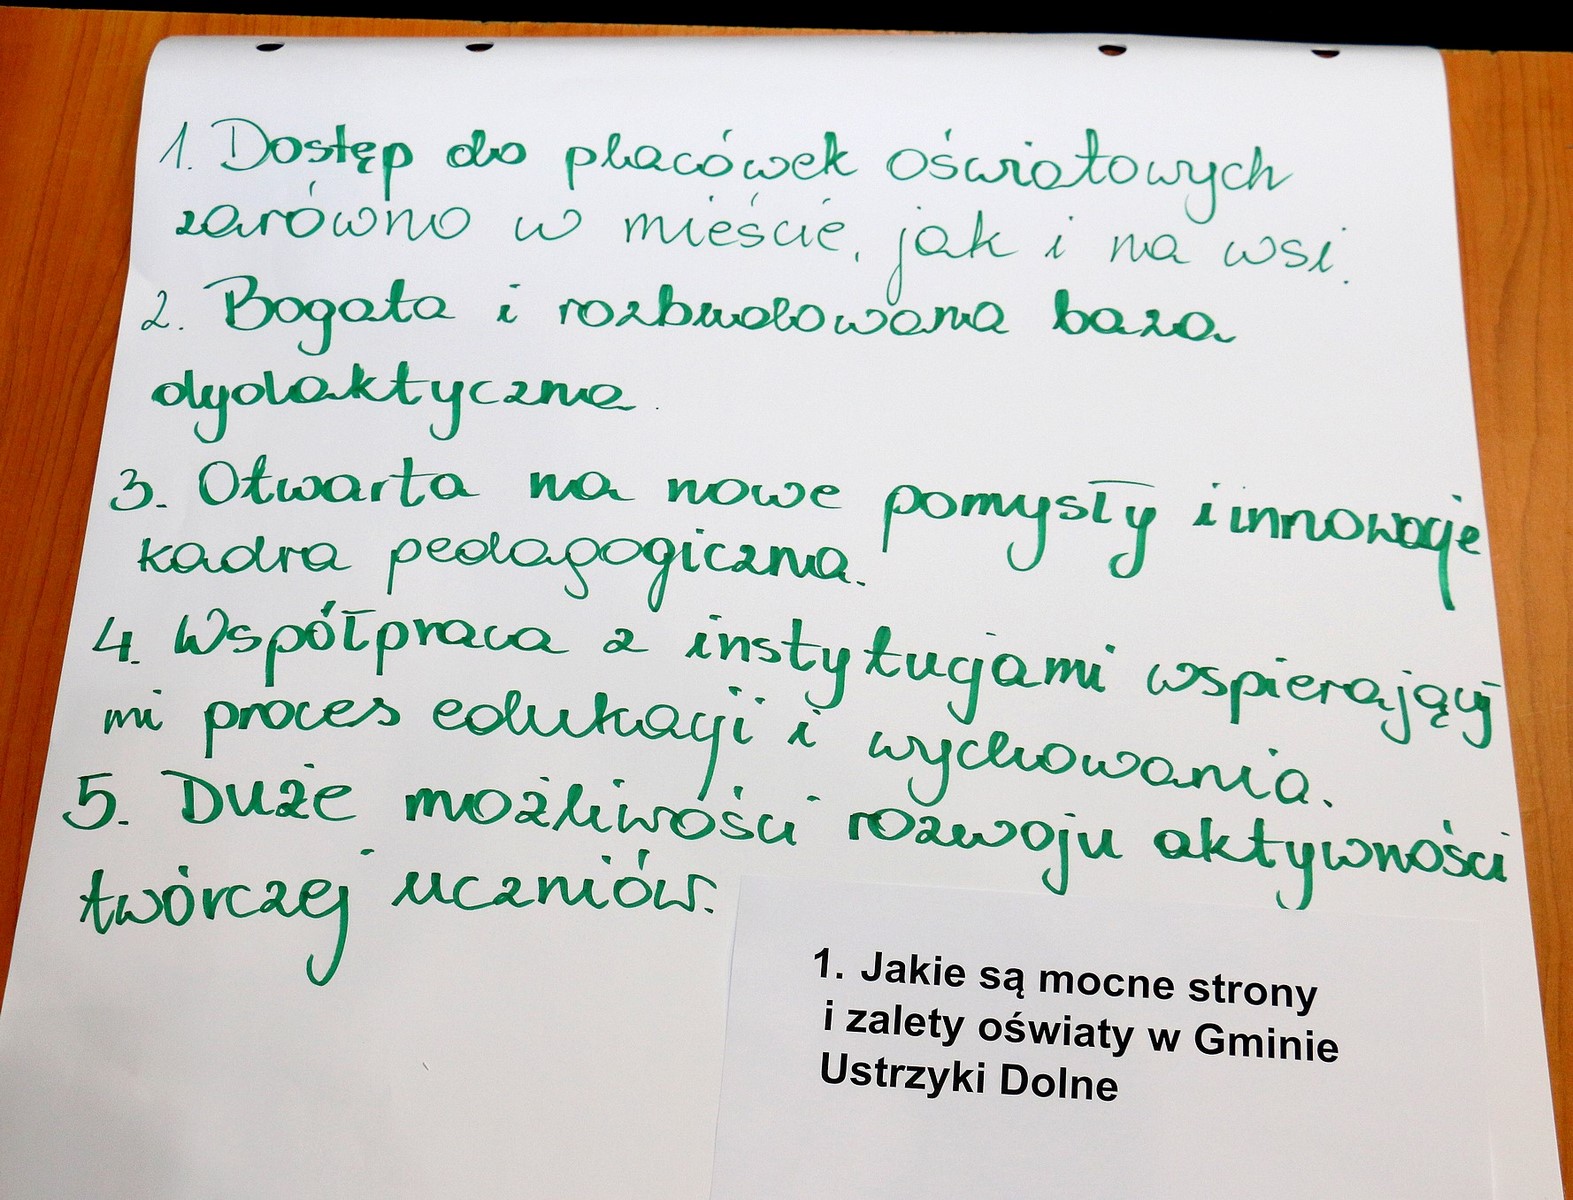 1. Dostęp do placówek oświatowych
zarówno w mieście, jak i na wsi.
2. Bogata i rozbudowana baza
dydaktyczna.
3. Otwarta na nowe pomysły i innowacje
kadra pedagogiczna.
4. Współpraca z instytucjami wspierający
mi proces edukacji i wychowania.
5. Duże możliwości rozwoju aktywności
twórczej uczniów.
1. Jakie są mocne strony
i zalety oświaty w Gminie
Ustrzyki Dolne